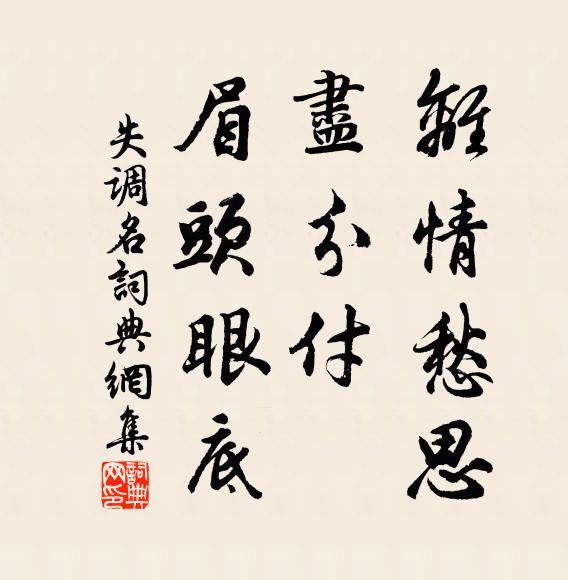 離情愁思
盡分付
眉頭眼底
失调名詞典網集
詞典网印